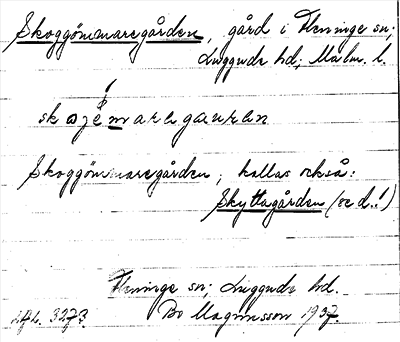 Skoggömmaregården, gård i Fleninge sn;
Luggude hd; Malm. l.
skɷjémaregaurən
Skoggömmaregården, kallas också:
Skyttagården (se d.!)
Fleninge sn; Luggude hd.
Bo Magnusson 1937.
3273.